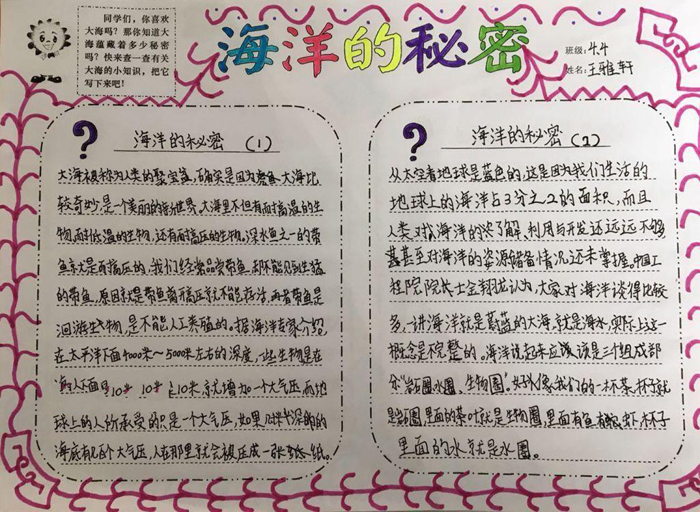 同学们，你喜欢
大海吗？那你知道大
海蕴藏着多少秘密
吗？快来查一查有关
大海的小知识，把它
写下来吧！
海洋的秘密
班级：4.4
姓名：王雅轩
?
海洋的秘密（1）
大海被称为人类的聚宝盆，确实是因为大海比
较奇妙，是一个美丽的新世界。大海里不但有耐高温的生
物，耐低温的生物，还有耐高压的生物。深水鱼之一的带
鱼就是耐高压的，我们经常品尝带鱼，却不能见到生猛
的带鱼，原因就是带鱼离高压就不能存活，再者带鱼是
洄游生物，是不能人工养殖的。据海洋专家介绍，
在太平洋下面4000米～5000米左右的深度，一些生物是在
10米就增加一个大气压，而地
球上的人所承受的只是一个大气压，如果
海底有几百个大气压，人在那里就会被压成一张纸。
?
海洋的秘密（2）
从太空看地球是蓝色的，这是因为我们生活的
地球上的海洋占3分之2的面积，而且
人类对海洋的了解、利用和开发还远远不够，
甚至对海洋的资源储备情况还未掌握。中国工
程院院士金翔龙认为，大家对海洋谈得比较
多，一讲海洋就是蔚蓝的大海，就是海水，实际上这一
概念是不完整的。海洋说起来应该是三个组成部
分“岩石圈、水圈、生物圈”。好像我们的一杯茶，杯子就
是岩石圈，里面的茶叶就是生物圈，里面有鱼、虾，杯子
里面的水就是水圈。